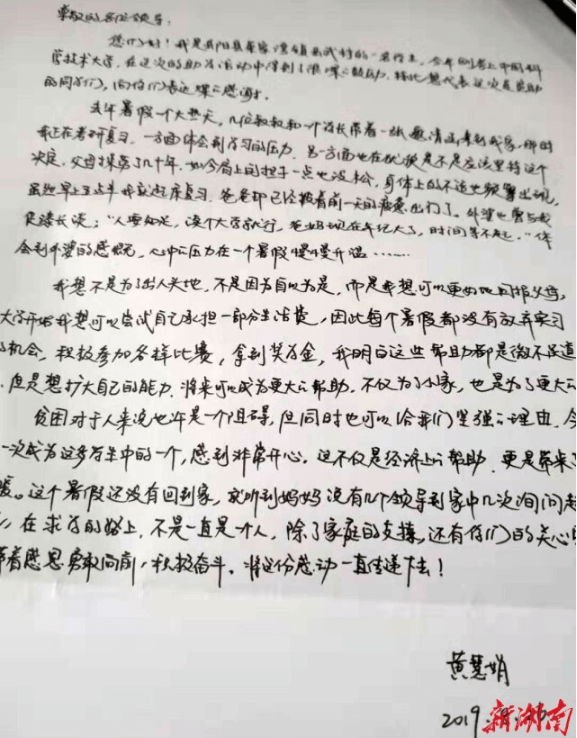 尊敬的各位领导：
您们好！我是岳阳县荣家湾镇 村的一名学生，今年 考上中国科
学技术大学，在这次的助学活动中得到了很 鼓励，特此 代表这次受资助
的同学们，向你们表达 感谢。
去年暑假一个大热天，几位叔叔和一个 长带着一张邀请函来到我家，那时
我正在考研复习，一方面体会到学习的压力，另一方面也在犹豫是不是应该坚持这个
决定，父母操劳了几十年，如今肩上的担子一点也没松，身体上的不适也频繁出现，
虽然早上 我就起床复习，爸爸却已经披着前一天的疲惫出门了。外婆也曾与我
促膝长谈："人要知足，读个大学就行，爸妈现在年纪大了，时间等不起。"体
会到外婆的感慨，心中的压力在一个暑假慢慢升温……
我想不是为了出人头地，不是因为自以为是，而是我想可以更好地回报父母，
大学开始我想可以尝试自己承担一部分生活费，因此每个暑假都没有放弃实习
机会，积极参加各样比赛，拿到奖学金，我明白这些帮助都是微不足道
，但是想扩大自己的能力，将来可以成为更大的帮助，不仅为了小家，也是为了更大
贫困对于人来说也许是一个阻碍，但同时也可以给我们坚强的理由，今
一次成为这多学生中的一个，感到非常开心，这不仅是经济上的帮助，更是带来
暖。这个暑假还没有回到家，就听到妈妈说有几个领导到家中几次询问起
，在求学的路上，不是一直是一个人，除了家庭的支撑，还有你们的关心
带着感恩勇敢向前，积极奋斗，将这份感动一直传递下去！
黄慧娟
2019.8.
新湖南